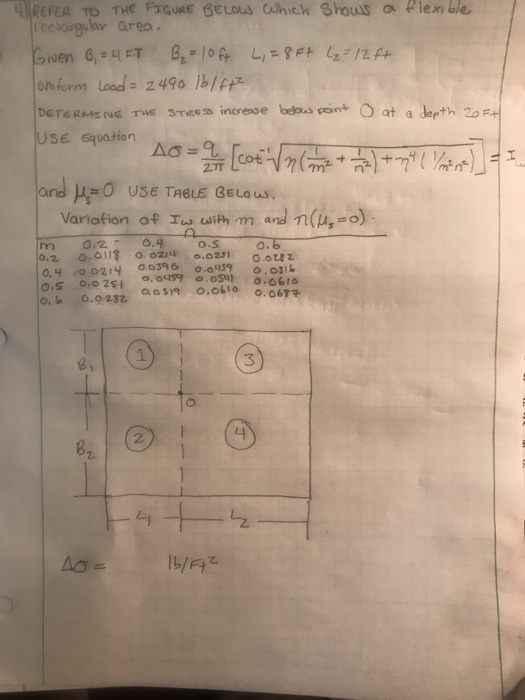 4) REFER TO THE FIGURE BELOW which Shows a flexible
rectangular area.
Given B₁ = 4 FT B₂ = 10 ft L₁ = 8 Ft L₂ = 12 ft
Uniform Load = 2490 lb/ft²
DETERMINE THE STRESS increase below point O at a depth 20 Ft
USE Equation
Δσ = q/2π [cot⁻¹ √η(1/m² + 1/n²) + η⁴(1/m²n²)] = I
and μₛ = 0 USE TABLE BELOW.
Variation of Iw with m and n (μₛ = 0).
n
m 0.2 0.4 0.5 0.6
0.2 0.0118 0.0214 0.0251 0.0282
0.4 0.0214 0.0396 0.0459 0.0516
0.5 0.0251 0.0459 0.0541 0.0610
0.6 0.0282 0.0519 0.0610 0.0687
B₁ 1 3
O
B₂ 2 4
L₁ L₂
Δσ = lb/Ft²